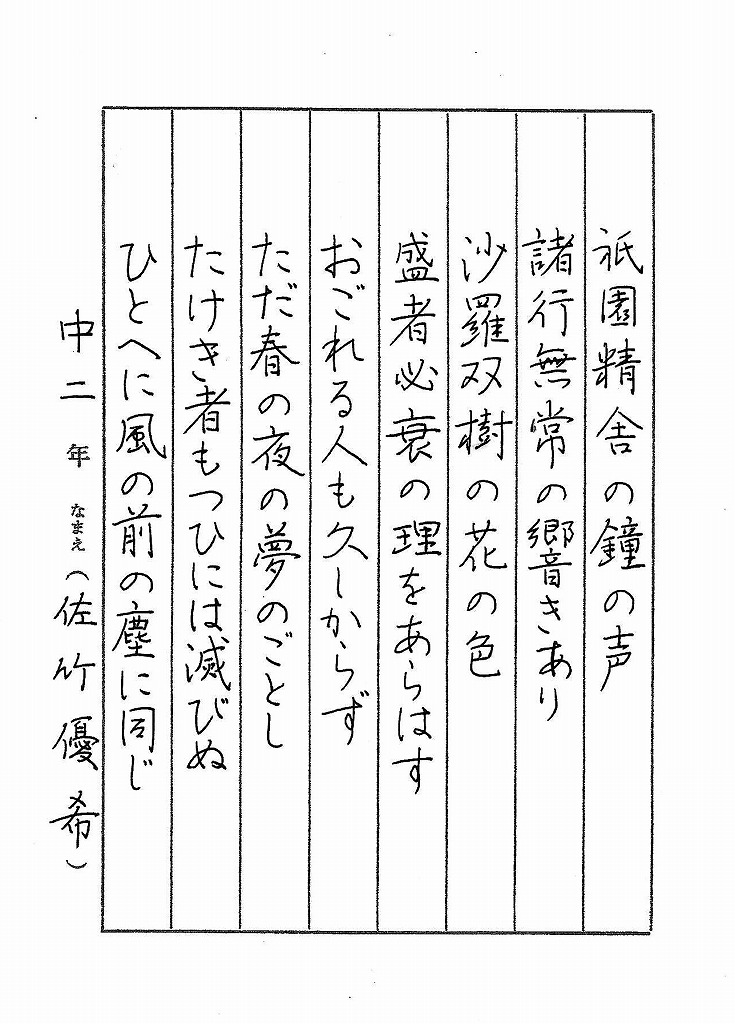 祇園精舎の鐘の声
諸行無常の響きあり
沙羅双樹の花の色
盛者必衰の理をあらはす
おごれる人も久しからず
ただ春の夜の夢のごとし
たけき者もつひには滅びぬ
ひとへに風の前の塵に同じ
中二年 なまえ(佐竹優希)